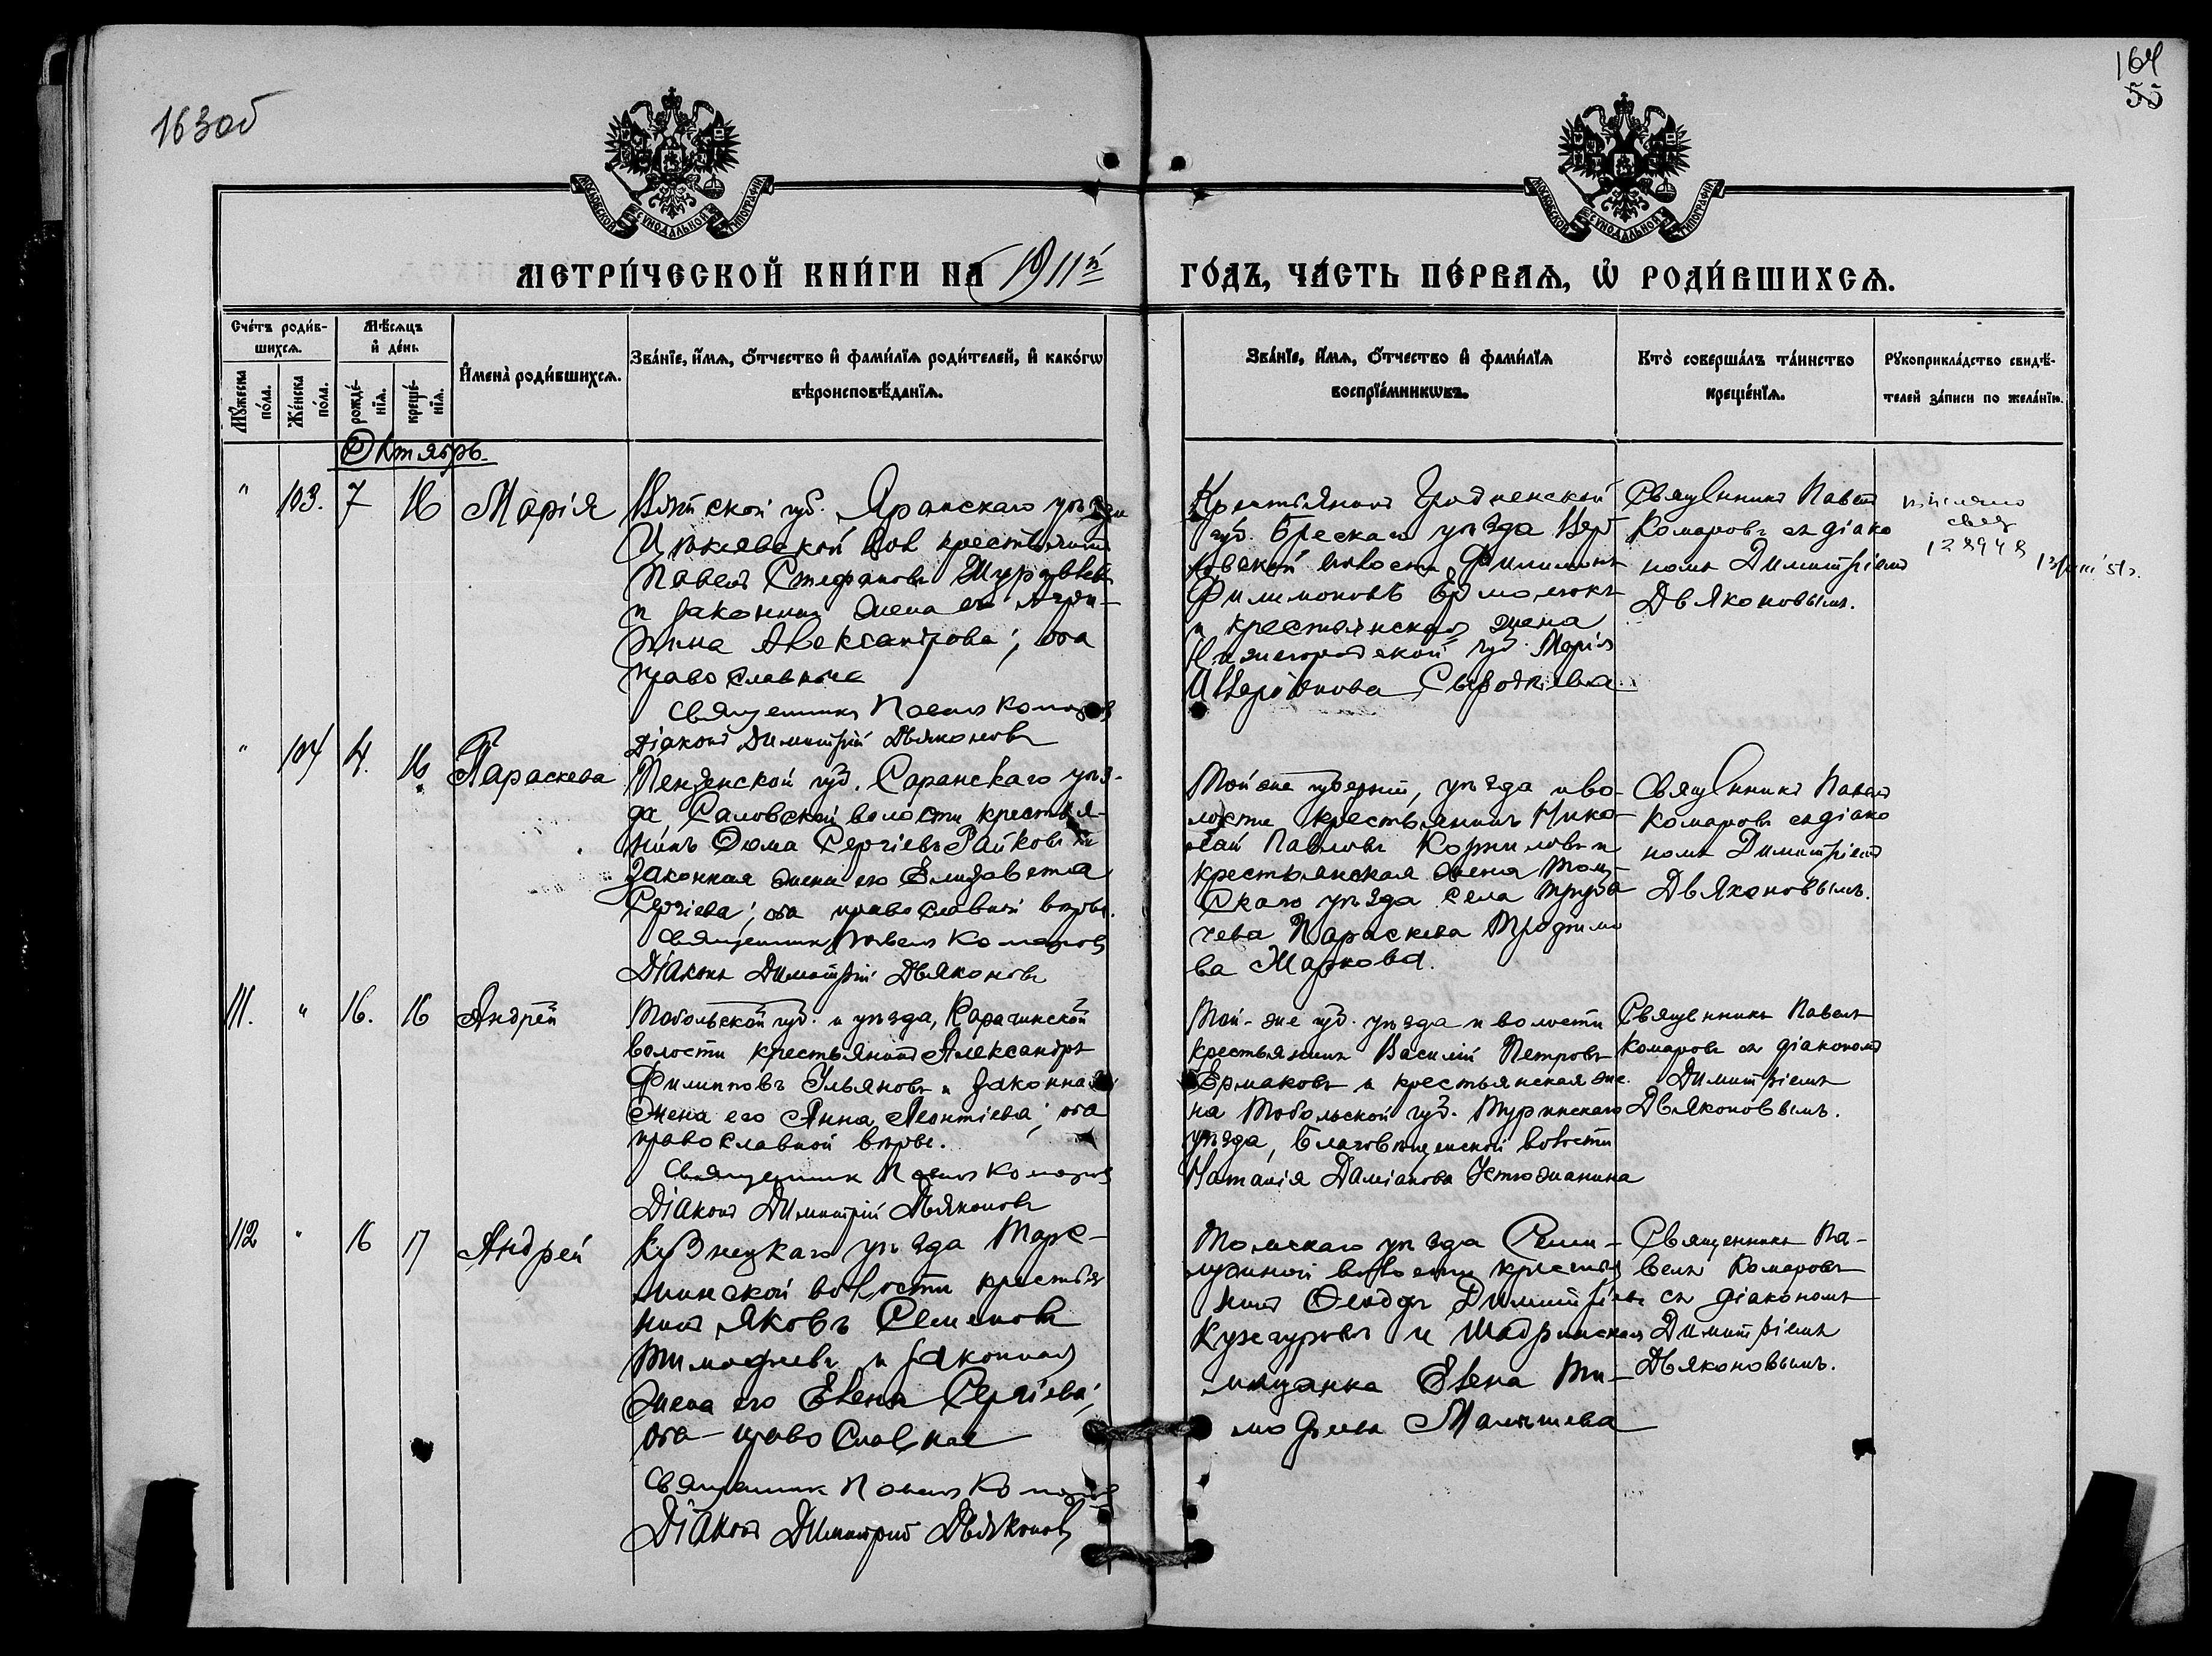 163об
164
55
МОСКОВСКОЙ СѴНОДАЛЬНОЙ ТИПОГРАФІИ
МОСКОВСКОЙ СѴНОДАЛЬНОЙ ТИПОГРАФІИ
МЕТРИ́ЧЕСКОЙ КНИ́ГИ НА 1911й
ГО́ДЪ, ЧА́СТЬ ПЕ́РВАѦ, Ѽ РОДИ́ВШИХСѦ.
Сче́тъ роди́в-
шихсѧ.
Мꙋ́жеска
по́ла.
Же́нска
по́ла.
Мѣ́сѧцъ
и҆ де́нь
рожде́-
нїѧ.
креще́-
нїѧ.
И҆мена̀ роди́вшихсѧ.
Зва́нїе, и҆́мѧ, ѻ҆́тчество и҆ фами́лїѧ роди́телей, и҆ како́гѡ
вѣроисповѣ́данїѧ.
Зва́нїе, и҆́мѧ, ѻ҆́тчество и҆ фами́лїѧ
воспрїе́мникѡвъ.
Кто̀ соверша́лъ та́инство
креще́нїѧ.
Рꙋкоприкла́дство свидѣ́-
телей за́писи по жела́нїю.
Октябрь
" 103. 7 16 Марія
Вятской губ. Яранскаго уѣзда
вол крестьянинъ
Павелъ Стефановъ Журавлевъ
и законная жена его Агри-
пина Александрова; оба
православные
Священникъ Павелъ Комаровъ
Діаконъ Димитрій Дьяконовъ
Крестьянинъ Гродненской
губ. Брескаго уѣзда
волости Филимонъ
Филимоновъ Ермолюкъ
и крестьянская жена
Нижегородской губ. Марія
Сыроткина
Священникъ Павелъ
Комаровъ съ діако
номъ Димитріемъ
Дьяконовымъ.
128948
" 104 14. 16 Параскева
Пензенской губ. Саранскаго уѣз-
да Саловской волости крестья-
нинъ Ѳома Сергіевъ Райковъ и
законная жена его Елизавета
Сергіева; оба православной вѣры.
Священникъ Павелъ Комаровъ
Діаконъ Димитрій Дьяконовъ
Той же губерніи, уѣзда и во-
лости крестьянинъ Нико-
лай Павловъ Корниловъ и
крестьянская жена Том-
скаго уѣзда села Труба-
чева Параскева Трофимо
ва Жаркова.
Священникъ Павелъ
Комаровъ съ діако
номъ Димитріемъ
Дьяконовымъ.
111. " 16. 16 Андрей
Тобольской губ. и уѣзда, Карачинской
волости крестьянинъ Александръ
Филипповъ Ульяновъ и законная
жена его Анна Леонтіева; оба
православной вѣры.
Священникъ Павелъ Комаровъ
Діаконъ Димитрій Дьяконовъ
Той-же губ. уѣзда и волости
крестьянинъ Василій Петровъ
Ермаковъ и крестьянская же
на Тобольской губ. Туринскаго
уѣзда, Благовѣщенской волости
Наталія Даміанова Устюжанина
Священникъ Павелъ
Комаровъ съ діакономъ
Димитріемъ
Дьяконовымъ.
112 " 16 17 Андрей
Кузнецкаго уѣзда Тарс-
минской волости крестья
нинъ Яковъ Семеновъ
Тимофеевъ и законная
жена его Елена Сергіева;
оба православные
Священникъ Павелъ Комаровъ
Діаконъ Димитрій Дьяконовъ
Томскаго уѣзда Семи-
лужной волости крестья
нинъ Ѳеодоръ Димитріевъ
и Шадринская
мѣщанка Елена Ти-
мофеева Малышева
Священникъ Па-
велъ Комаровъ
съ діакономъ
Димитріемъ
Дьяконовымъ.